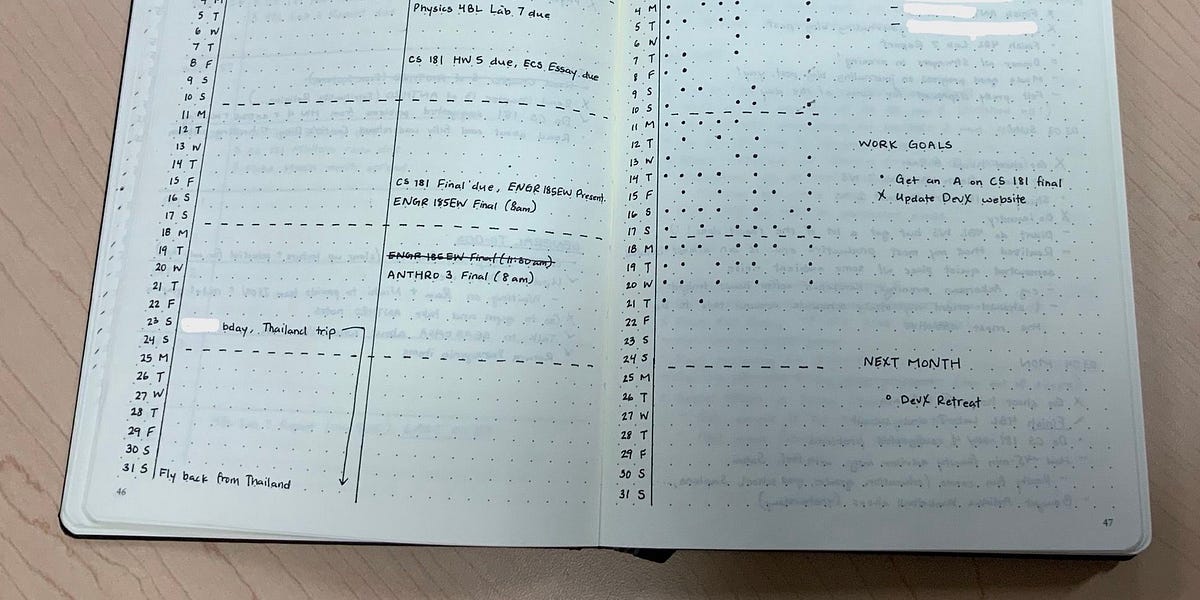 4 M
5 T Physics 4BL Lab 7 due
6 W
7 T
8 F CS 181 HW 5 due, ECS Essay due
9 S
10 S
11 M
12 T
13 W
14 T
15 F CS 181 Final due, ENGR 185EW Present.
16 S ENGR 185EW Final (8am)
17 S
18 M
19 T ENGR 185EW Final (11:30am)
20 W ANTHRO 3 Final (8am)
21 T
22 F
23 S bday, Thailand trip
24 S
25 M
26 T
27 W
28 T
29 F
30 S
31 S Fly back from Thailand
46
4 M
5 T
6 W
7 T
8 F
9 S
10 S
11 M
12 T
13 W
14 T
15 F
16 S
17 S
18 M
19 T
20 W
21 T
22 F
23 S
24 S
25 M
26 T
27 W
28 T
29 F
30 S
31 S
WORK GOALS
• Get an A on CS 181 final
X Update DevX website
NEXT MONTH
o DevX Retreat
47